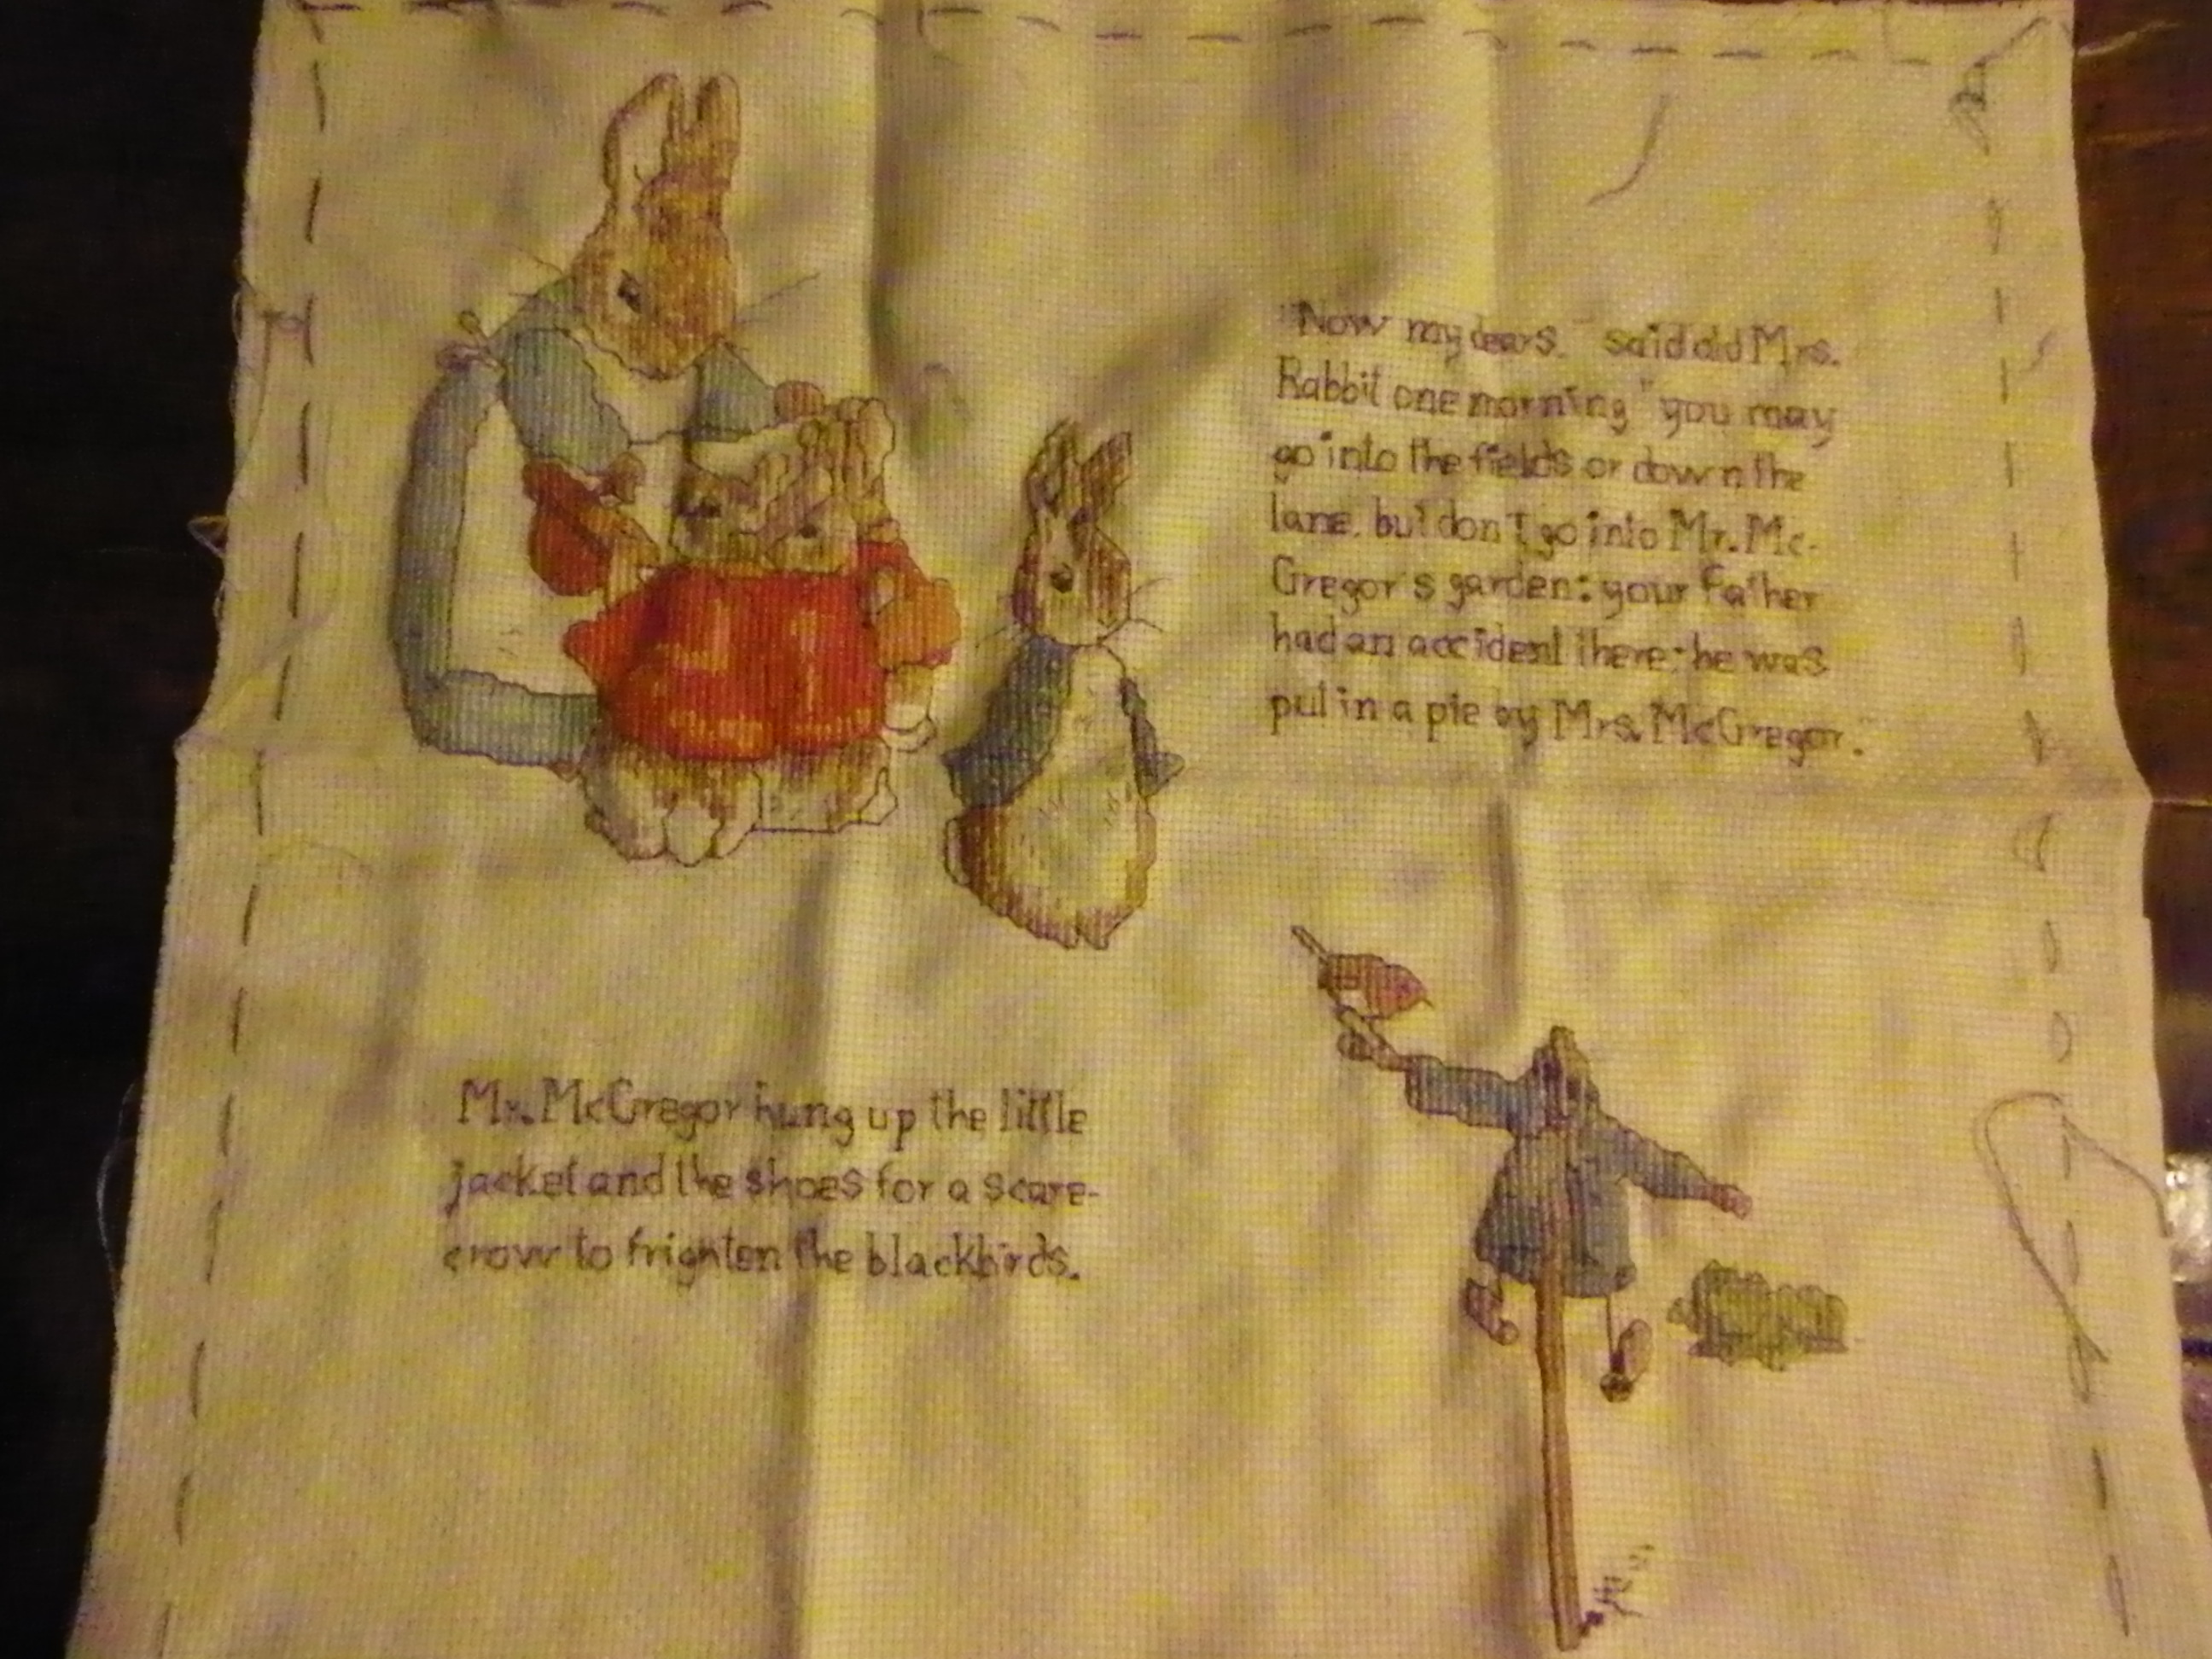 "Now my dears," said old Mrs.
Rabbit one morning "you may
go into the fields or down the
lane, but don't go into Mr. Mc-
Gregor's garden: your Father
had an accident there; he was
put in a pie by Mrs. McGregor."
Mr. McGregor hung up the little
jacket and the shoes for a scare-
crow to frighten the blackbirds.